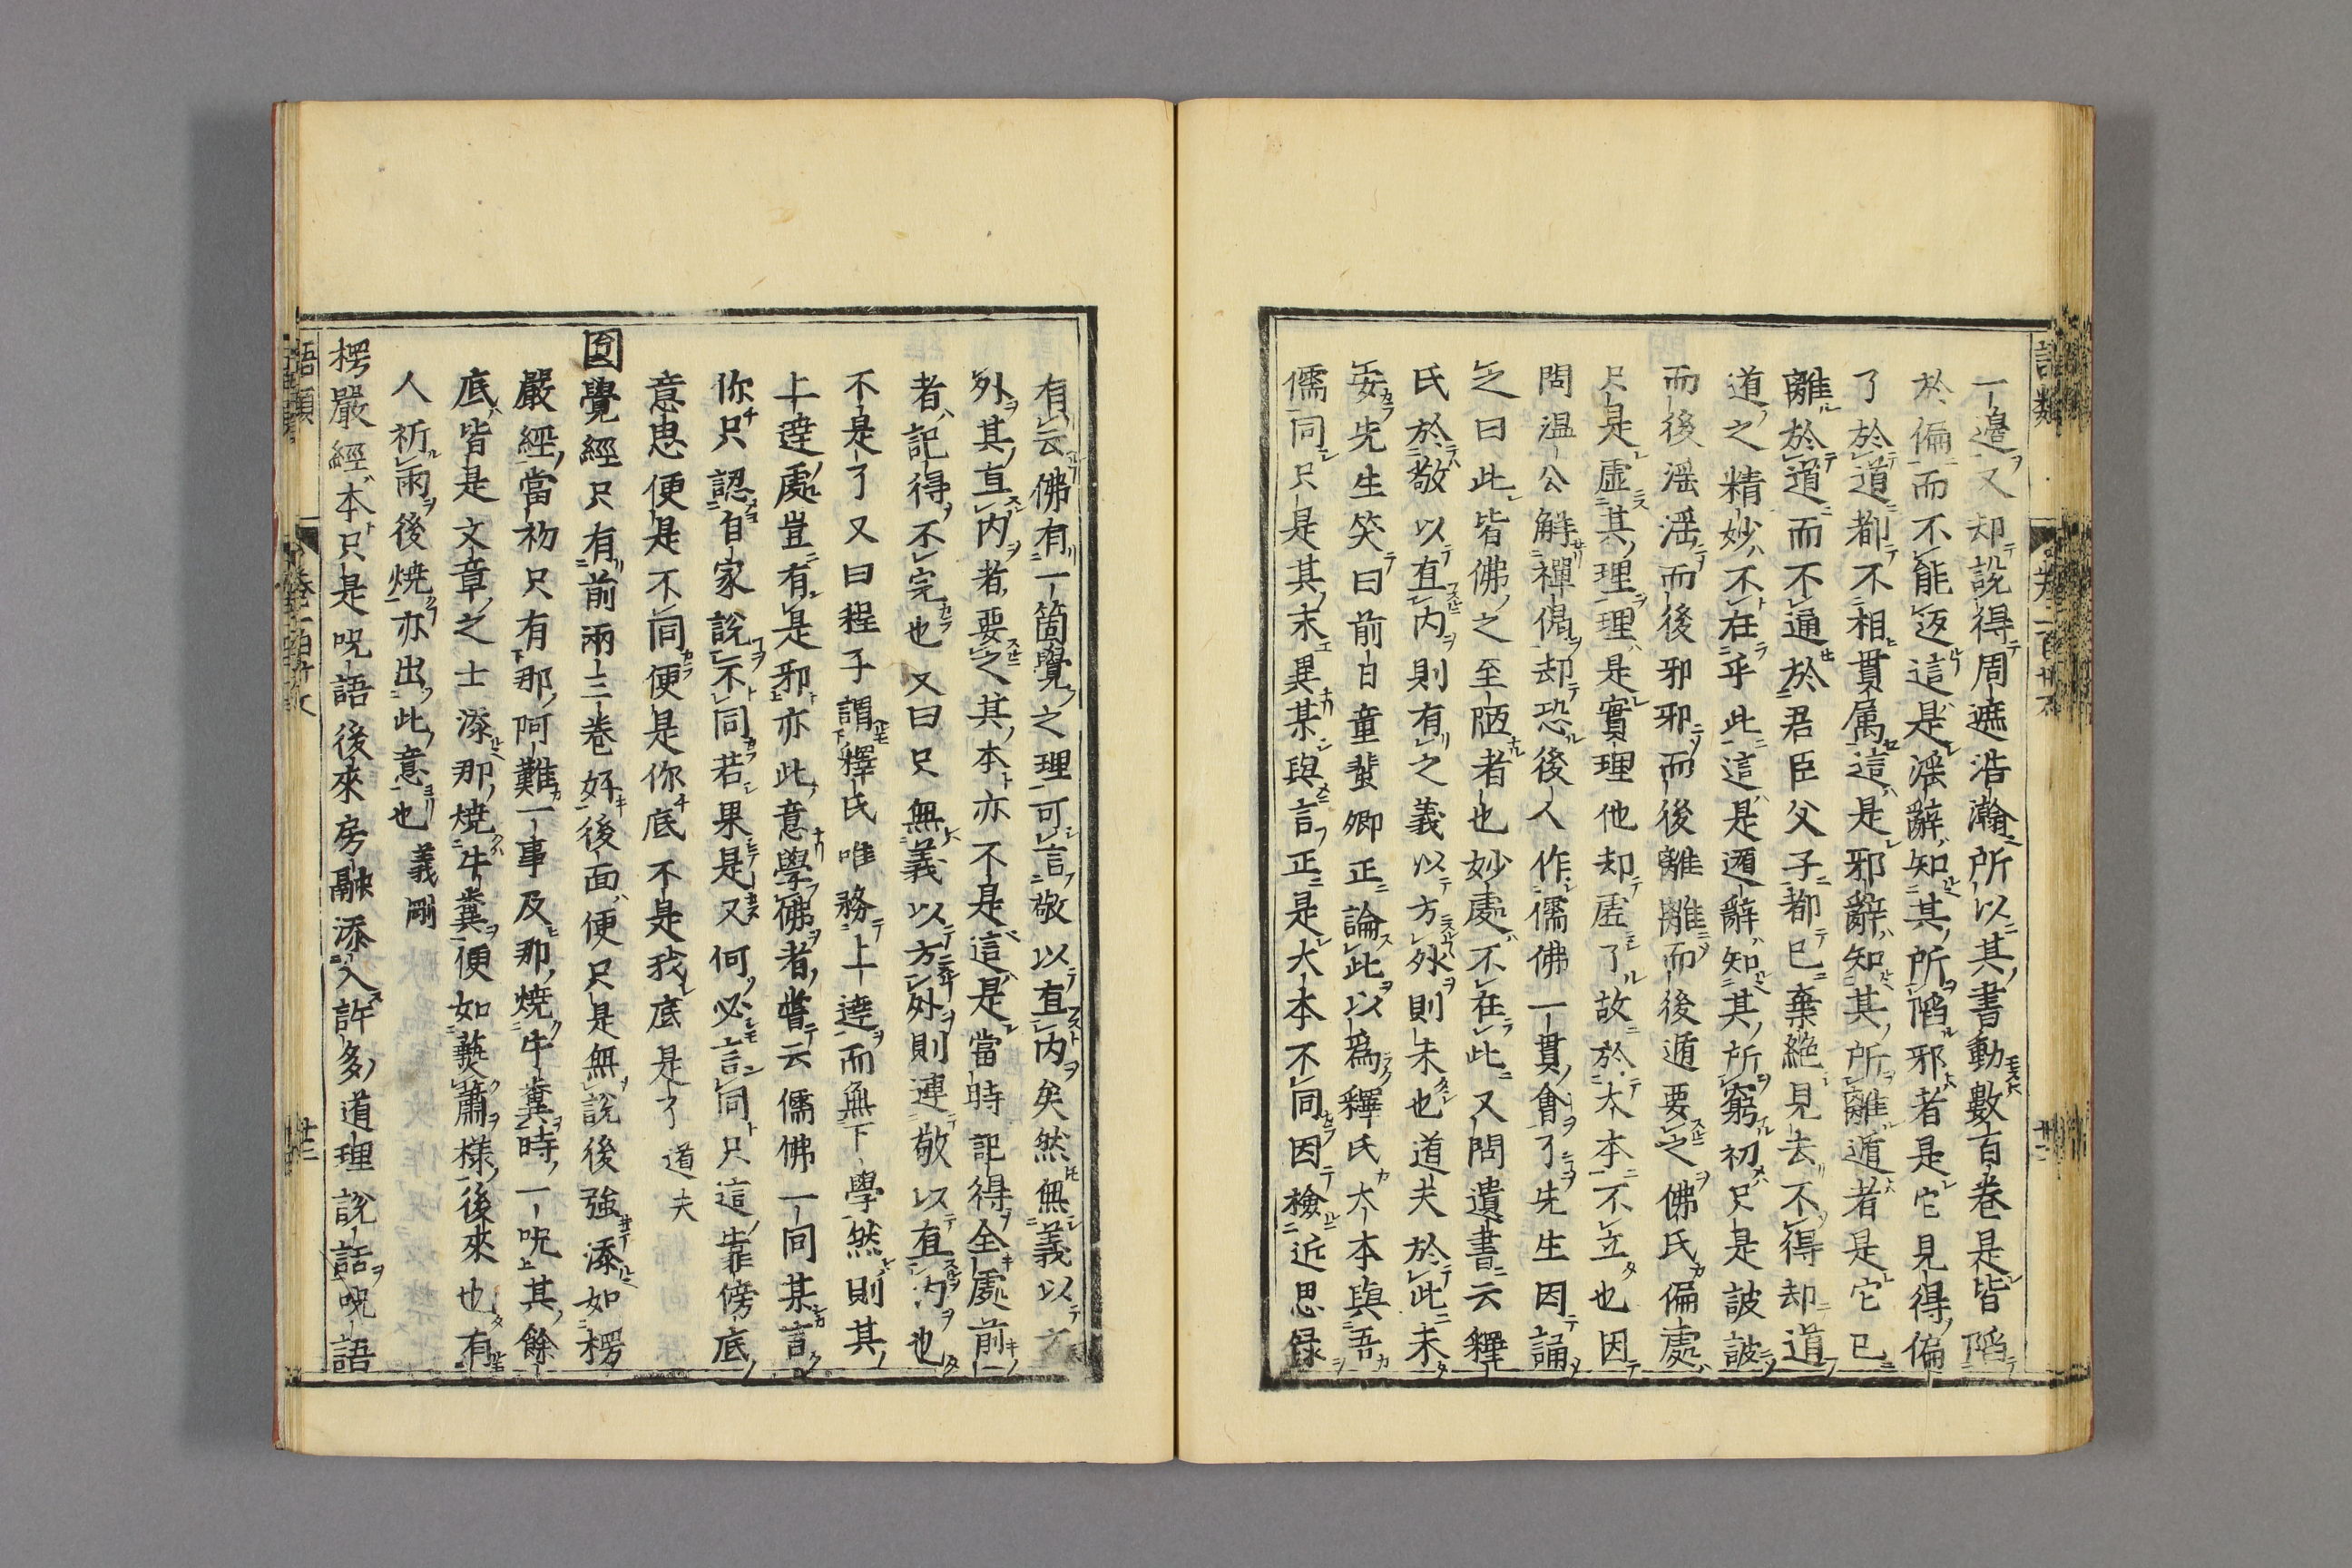 一邊又却說得周遮浩瀚所以其書動數百卷是皆䧟
於偏而不能返這是滛辭知其所䧟邪者是它見得偏
了於道都不相貫属這是邪辭知其所離遁者是它已
離於道而不通於君臣父子都已棄絶見去不得却道
道之精妙不在乎此這是遁辭知其所窮初只是詖詖
而後滛滛而後邪邪而後離離而後遁要之佛氏偏處
只是虚其理理是實理他却虚了故於大本不立也因
問温公解禪偈却恐後人作儒佛一貫會了先生因誦
之曰此皆佛之至陋者也妙處不在此又問遺書云釋
氏於敬以直内則有之義以方外則未也道夫於此未
安先生笑曰前日童蜚卿正論此以爲釋氏大本與吾
儒同只是其末異某與言正是大本不同因檢近思録
有云佛有一箇覺之理可言敬以直内矣然無義以方
外其直内者要之其本亦不是這是當時記得全處前
者記得不完也又曰只無義以方外則連敬以直内也
不是了又曰程子謂釋氏唯務上達而無下學然則其
上達處豈有是邪亦此意學佛者嘗云儒佛一同某言
你只認自家說不同若果是又何必言同只這靠傍底
意思便是不同便是你底不是我底是了 道夫
圓覺經只有前兩三卷好後面便只是無說後強添如楞
嚴經當初只有那阿難一事及那燒牛糞時一呪其餘
底皆是文章之士添那燒牛糞便如爇蕭樣後來也有
人祈雨後燒亦出此意也 義剛
楞嚴經本只是呪語後來房融添入許多道理說話呪語
語類